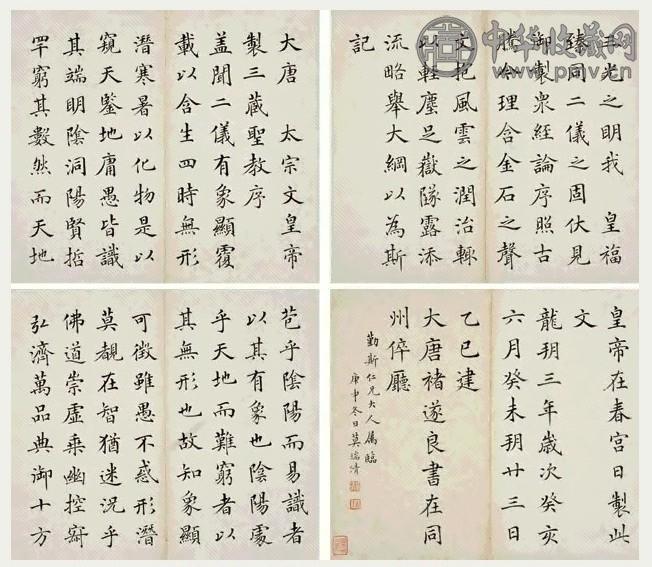 大唐 太宗文皇帝
製三藏聖教序
盖聞二儀有象顯覆
載以含生四時無形
潛寒暑以化物是以
窺天鑒地庸愚皆識
其端明陰洞陽賢哲
罕窮其數然而天地
苞乎陰陽而易識者
以其有象也陰陽處
乎天地而難窮者以
其無形也故知象顯
可徵雖愚不惑形潛
莫覩在智猶迷況乎
佛道崇虛乘幽控寂
弘濟萬品典御十方
光之明我 皇福
臻同二儀之固伏見
御製衆經論序照古
騰今理含金石之聲
文抱風雲之潤治輒
以輕塵足嶽墜露添
流略舉大綱以為斯
記
皇帝在春宮日製此
文
龍朔三年歲次癸亥
六月癸未朔廿三日
乙巳建
大唐褚遂良書在同
州倅廳
勤斯仁兄大人属臨
庚申冬日莫瑞清
中华收藏网